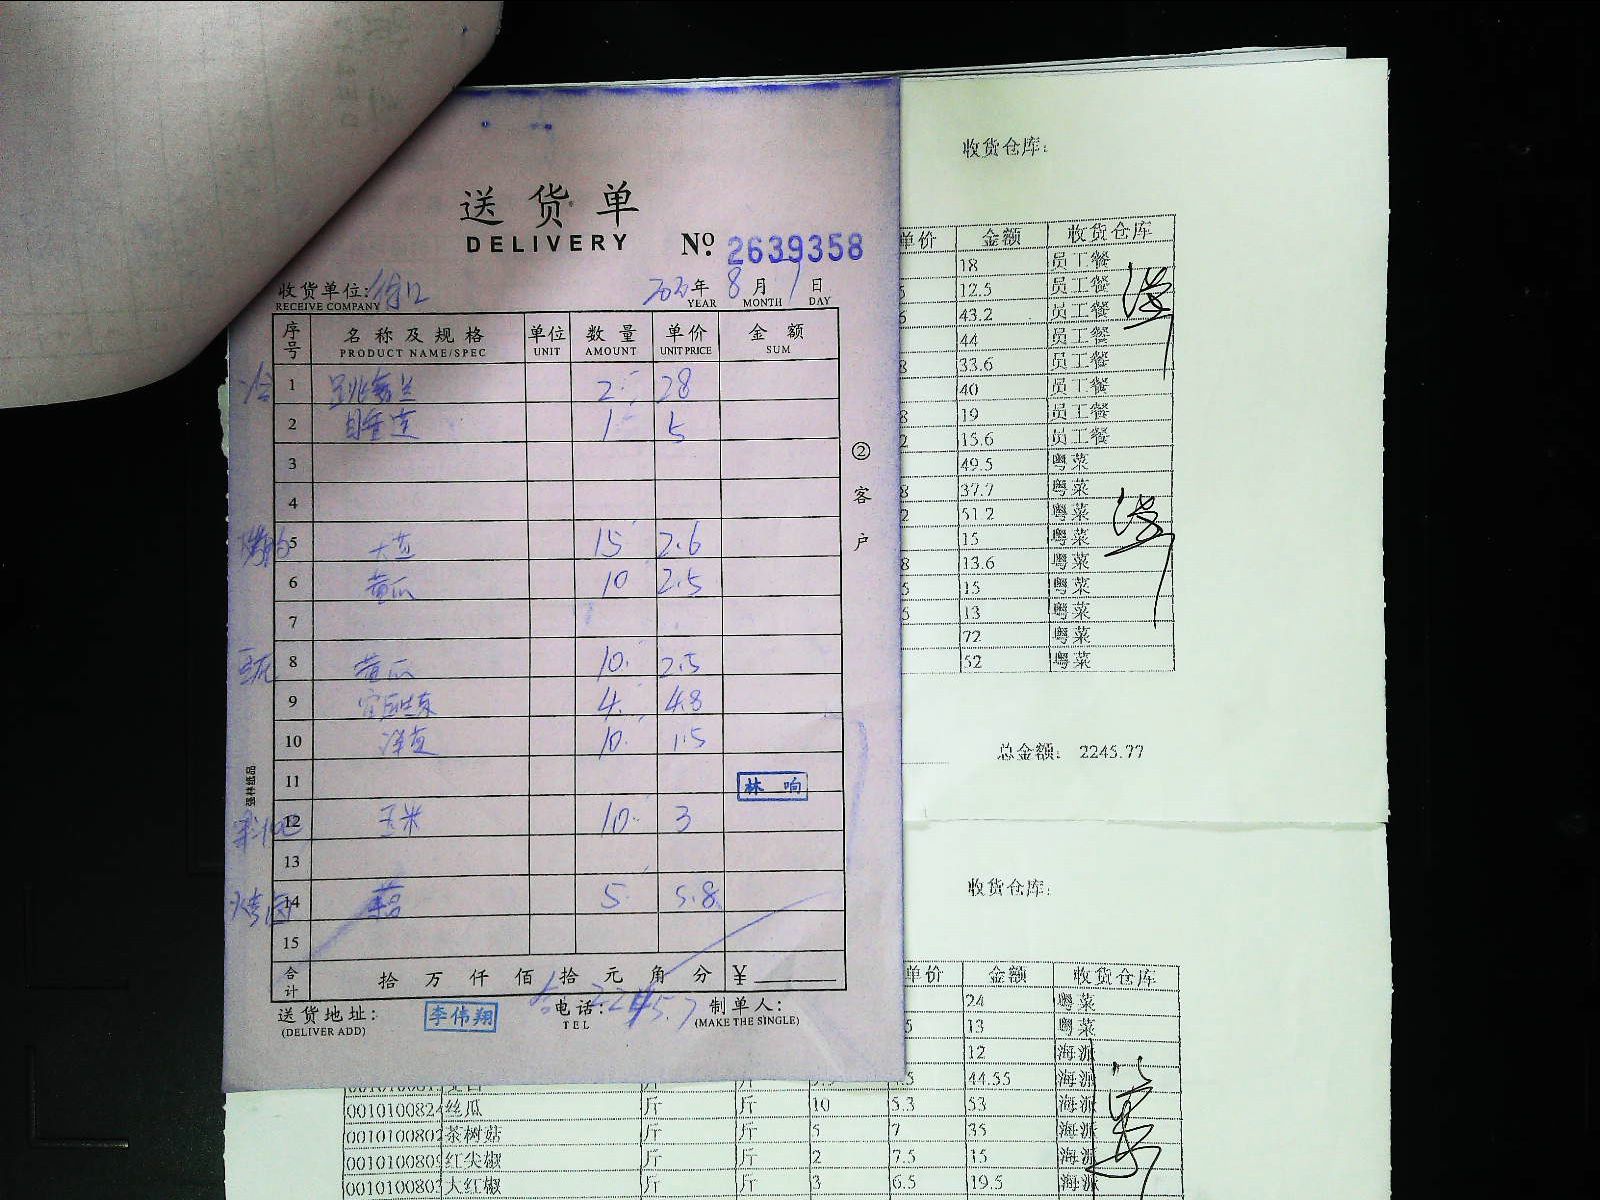 送货单
DELIVERY
No. 2639358
收货单位:
RECEIVE COMPANY
年 8 月 1 日
YEAR MONTH DAY
序号 名称及规格 单位 数量 单价 金额
PRODUCT NAME/SPEC UNIT AMOUNT UNIT PRICE SUM
1 2 28
2 1 5
3
4
5 15 2.6
6 黄瓜 10 2.5
7
8 黄瓜 10 2.5
9 4 4.8
10 洋葱 10 1.5
11
林响
12 玉米 10 3
13
14 5 5.8
15
合计 拾万仟佰拾元角分 ¥
送货地址: 李伟翔 电话: 制单人:
(DELIVER ADD) TEL (MAKE THE SINGLE)
②客户
强林纸品
收货仓库:
单价 金额 收货仓库
18 员工餐
5 12.5 员工餐
6 43.2 员工餐
44 员工餐
8 33.6 员工餐
40 员工餐
8 19 员工餐
2 15.6 员工餐
49.5 粤菜
8 37.7 粤菜
2 51.2 粤菜
15 粤菜
8 13.6 粤菜
5 15 粤菜
5 13 粤菜
72 粤菜
52 粤菜
总金额: 2245.77
收货仓库:
单价 金额 收货仓库
24 粤菜
5 13 粤菜
12 海派
44.55 海派
001010082 丝瓜 斤 斤 10 5.3 53 海派
001010080 茶树菇 斤 斤 5 7 35 海派
001010080 红尖椒 斤 斤 2 7.5 15 海派
001010080 大红椒 斤 斤 3 6.5 19.5 海派